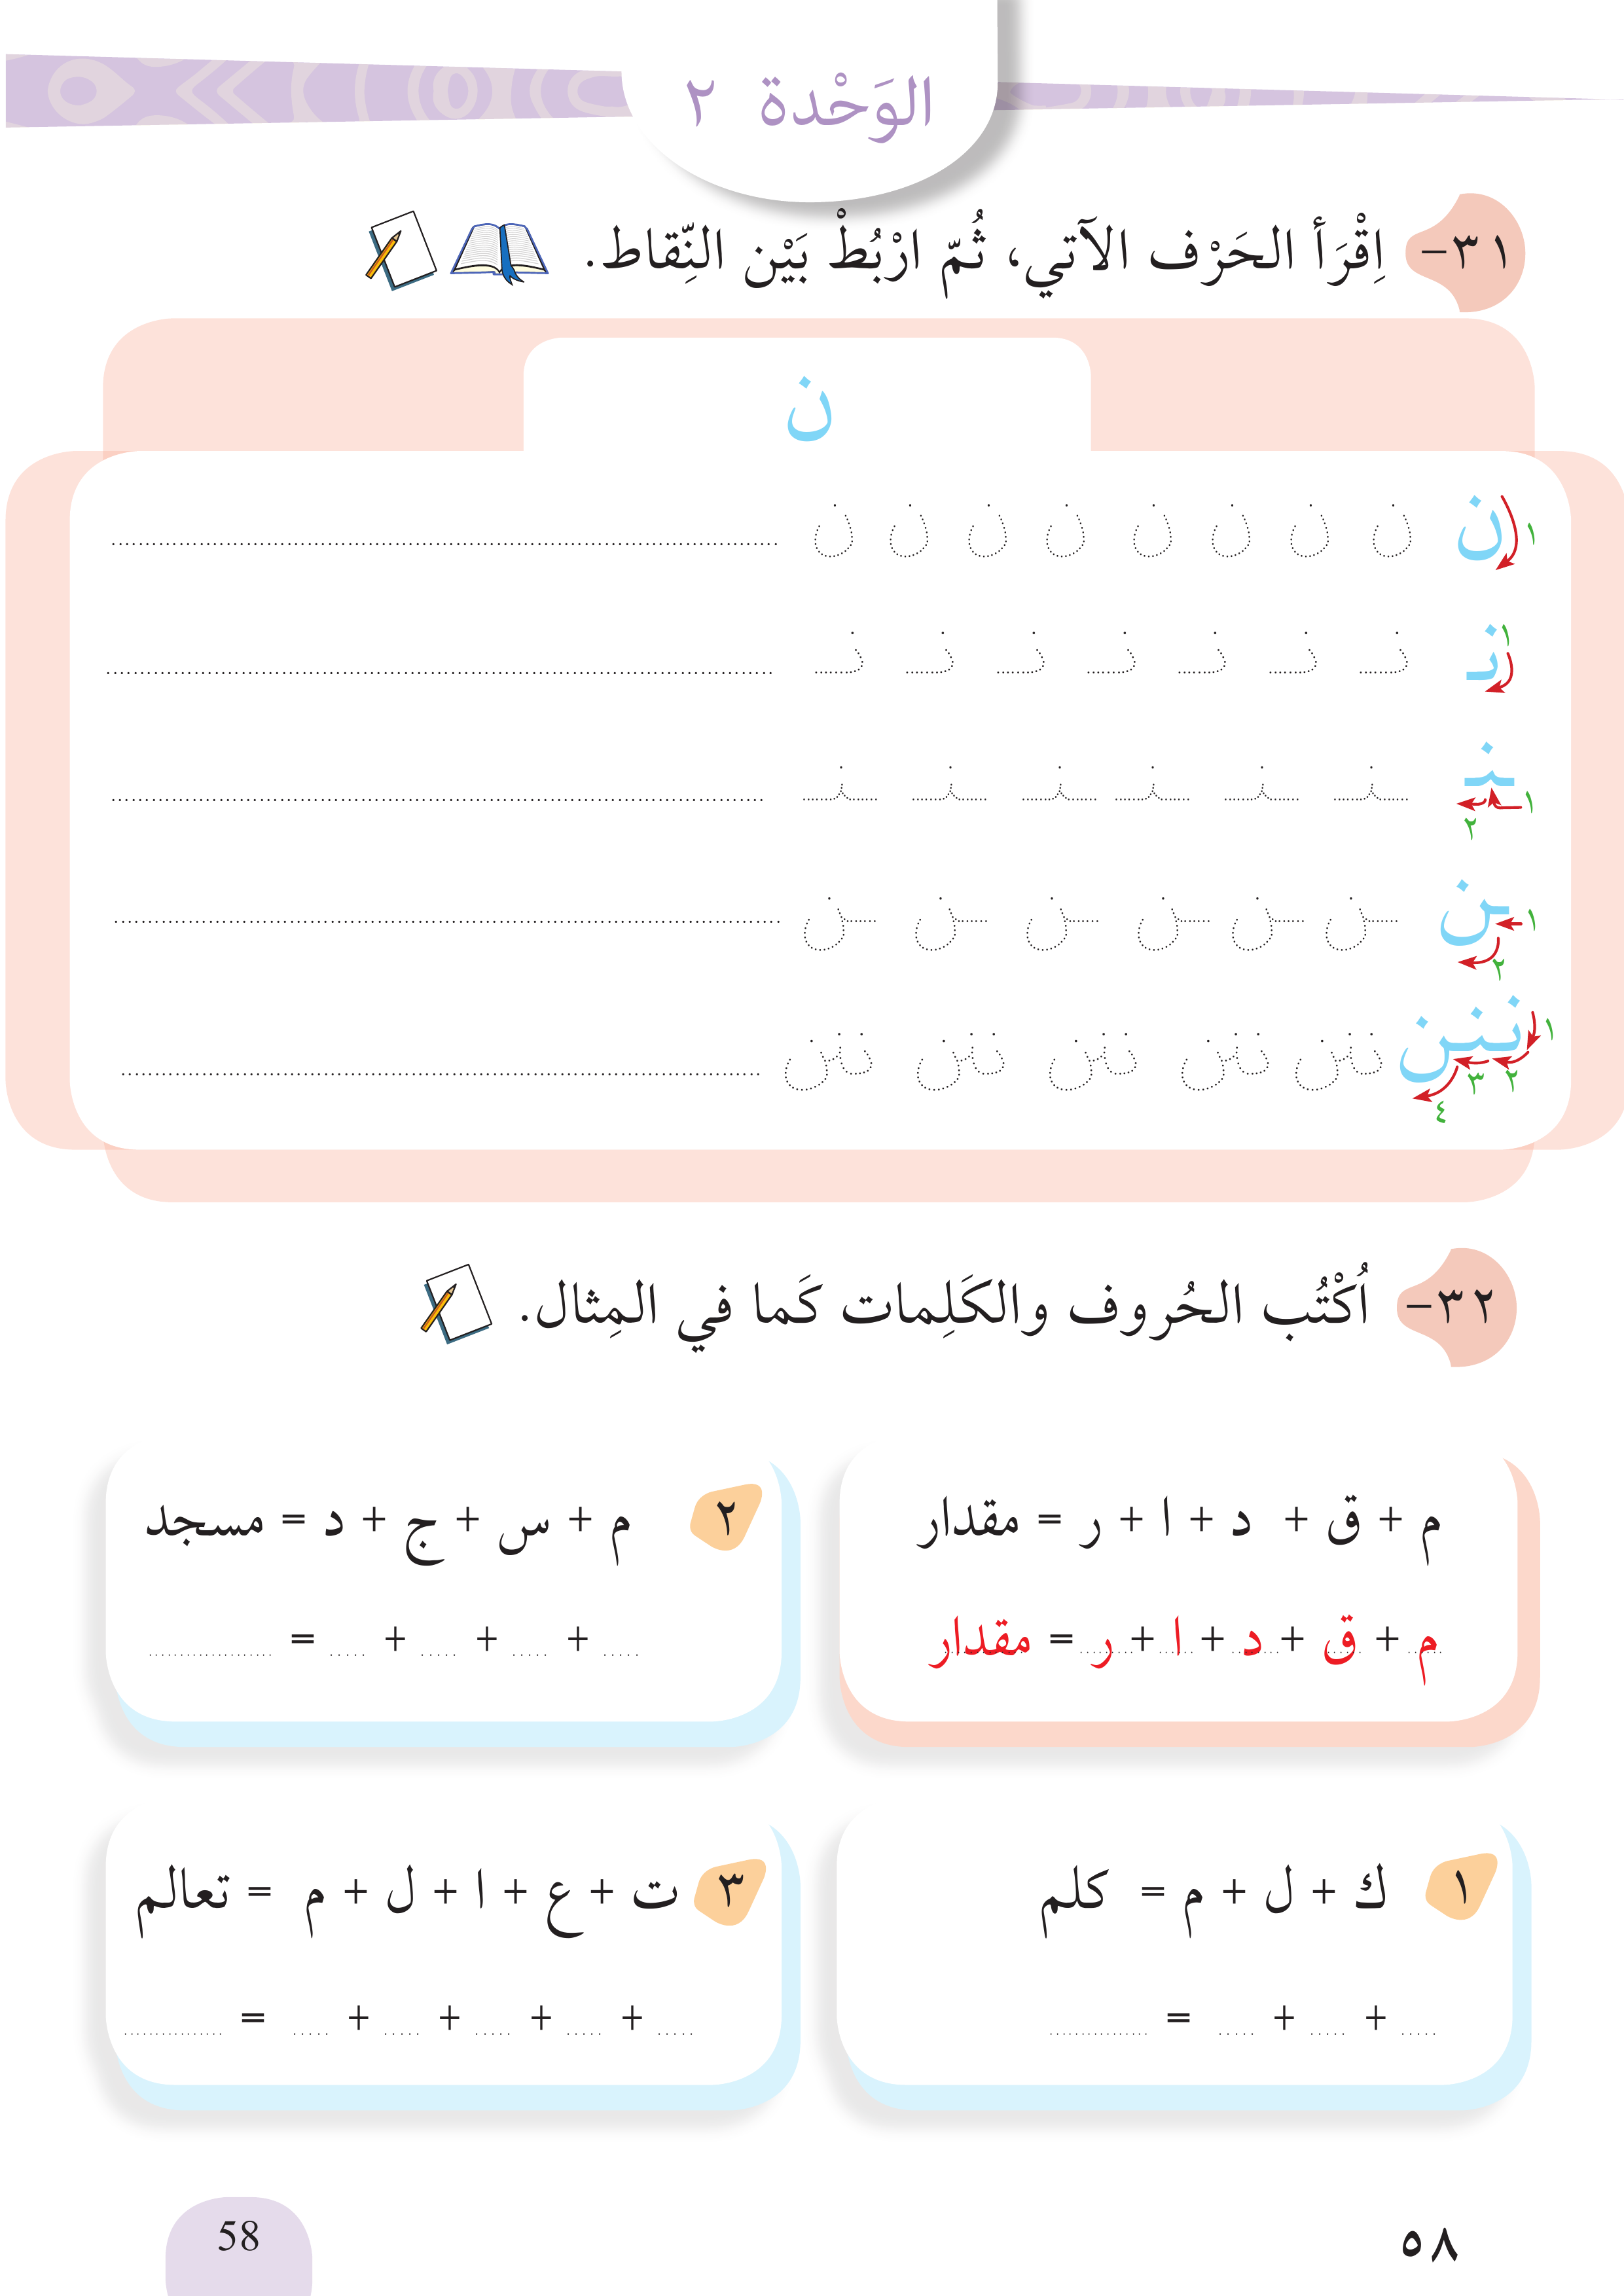 الوَحْدة ٢
٣١- اِقْرَأ الحَرْف الآتي، ثُمّ ارْبُطْ بَيْن النِّقاط.
ن
١ ن ن ن ن ن ن ن ن ن
١ نـ نـ نـ نـ نـ نـ نـ نـ
١ ٢ ـنـ ـنـ ـنـ ـنـ ـنـ ـنـ ـنـ
١ ٢ ـن ـن ـن ـن ـن ـن ـن
١ ٢ ٣ ٤ ننن ننن ننن ننن ننن ننن
٣٢- اُكْتُب الحُروف والكَلِمات كَما في المِثال.
م + ق + د + ا + ر = مقدار
م + ق + د + ا + ر = مقدار
٢ م + س + ج + د = مسجد
..... + ..... + ..... + ..... = .....................
١ ك + ل + م = كلم
..... + ..... + ..... = ................
٣ ت + ع + ا + ل + م = تعالم
..... + ..... + ..... + ..... + ..... = ................
٥٨
58